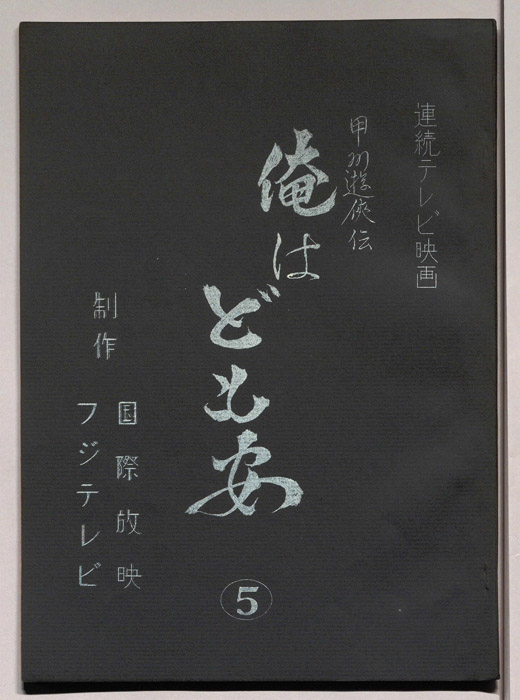 連続テレビ映画
甲州遊侠伝
俺は
ども安
制作
国際放映
フジテレビ
5